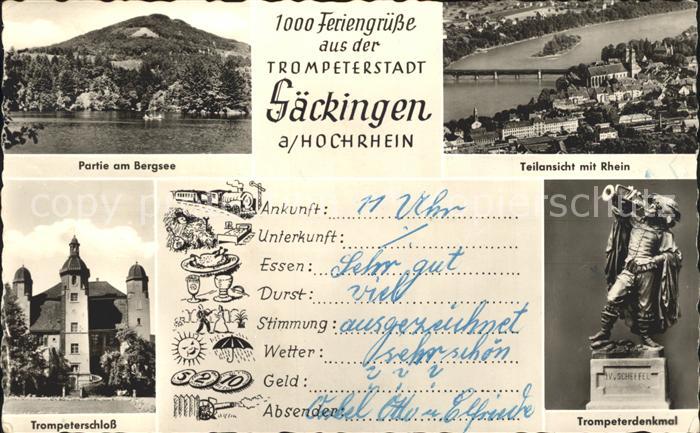 1000 Feriengrüße
aus der
TROMPETERSTADT
Säckingen
a/HOCHRHEIN
Partie am Bergsee
Teilansicht mit Rhein
Ankunft: 11 Uhr
Unterkunft: ./.
Essen: Sehr gut
Durst: viel
Stimmung: ausgezeichnet
Wetter: sehr schön
5 2 10
Geld: ? ? ?
Absender: Onkel Otto u. Elfriede
J.V. SCHEFFEL
Trompeterschloß
Trompeterdenkmal